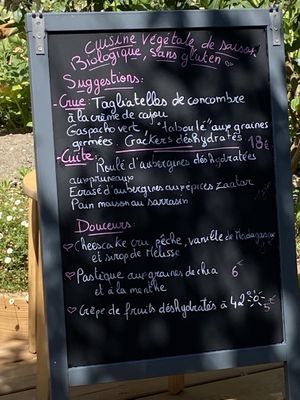 Cuisine végétale de saison
Biologique, Sans gluten
Suggestions:
- Crue: Tagliatelles de concombre
à la crème de cajou
Gaspacho vert, "taboulé" aux graines
germées. Crackers déshydratés 18€
- Cuite: Roulé d'aubergines déshydratées
aux pruneaux
Ecrasé d'aubergines aux épices zaatar
Pain maison au sarrasin
Douceurs:
Cheescake cru pêche, vanille de Madagascar
et sirop de Mélisse
Pastèque aux graines de chia 6€
et à la menthe
Crêpe de fruits déshydratés à 42° 5€